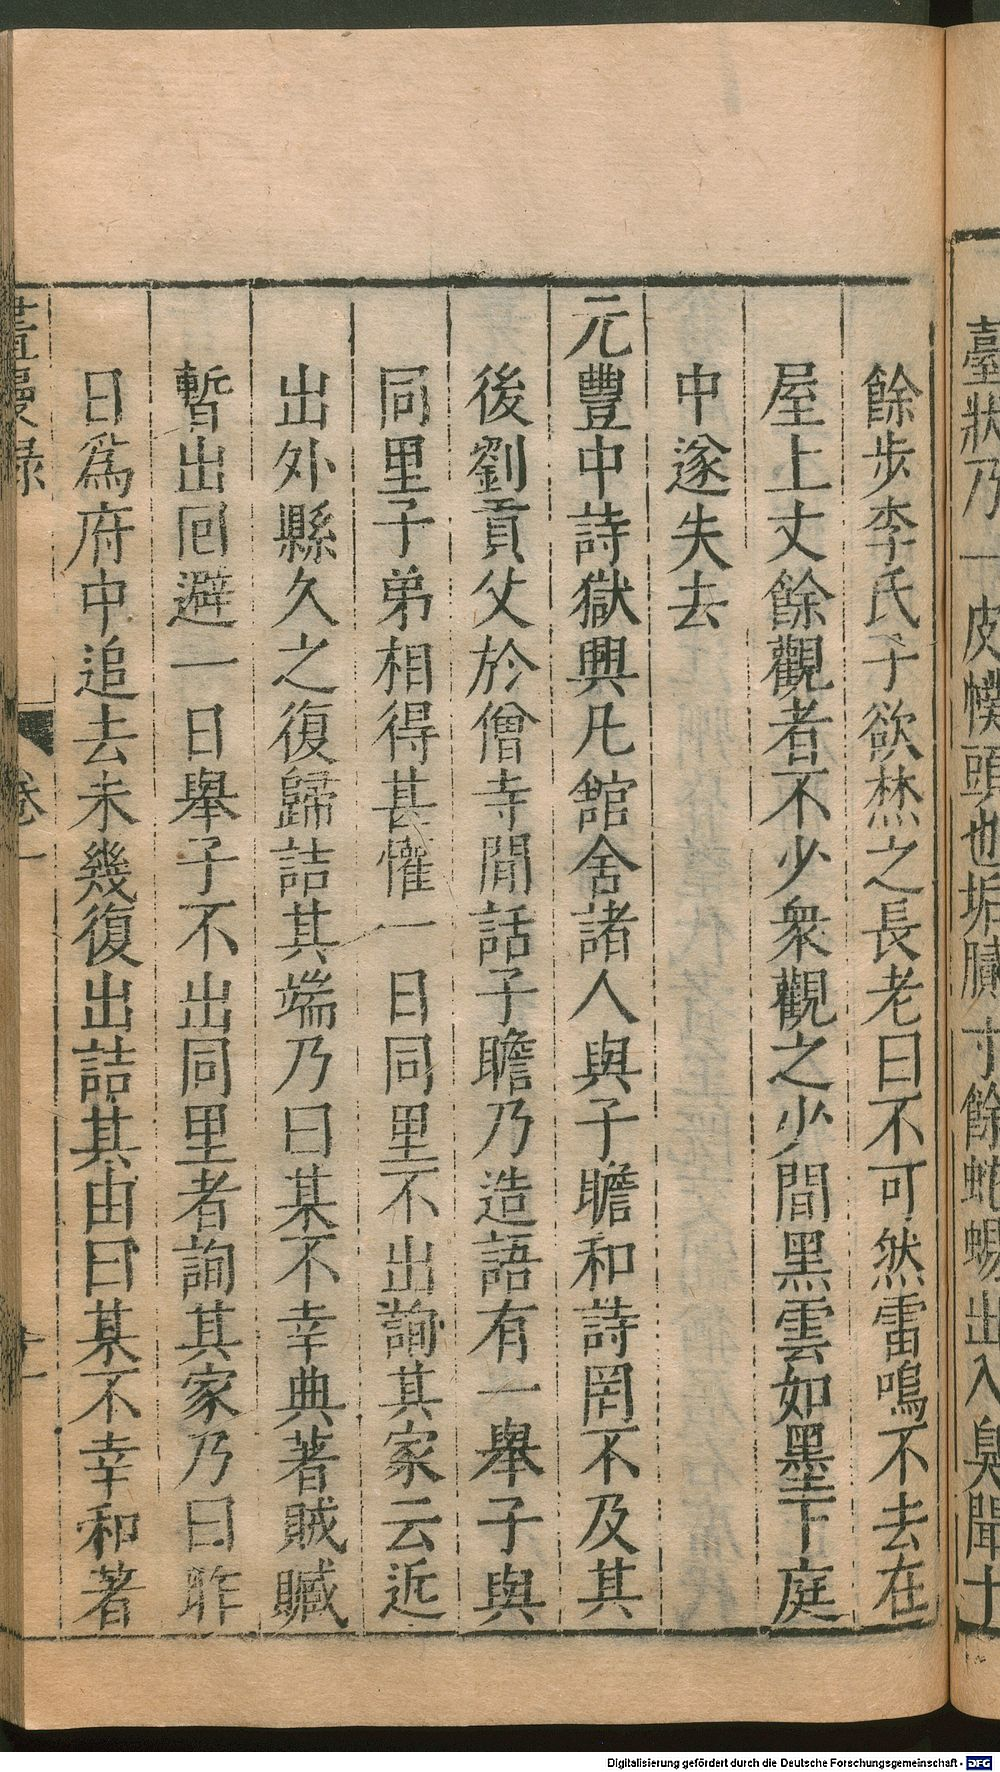 臺狀乃一皮幞頭也垢膩寸餘蛇蜴出入臭聞十
餘步李氏子欲焚之長老曰不可然雷鳴不去在
屋上丈餘觀者不少衆觀之少間黑雲如墨下庭
中遂失去
元豐中詩獄興凡舘舍諸人與子瞻和詩罔不及其
後劉貢父於僧寺閒話子瞻乃造語有一舉子與
同里子弟相得甚懽一日同里不出詢其家云近
出外縣久之復歸詰其端乃曰某不幸典著賊贓
暫出囘避一日舉子不出同里者詢其家乃曰昨
日爲府中追去未幾復出詰其由曰某不幸和著
畫墁錄
卷一
Digitalisierung gefördert durch die Deutsche Forschungsgemeinschaft - DFG